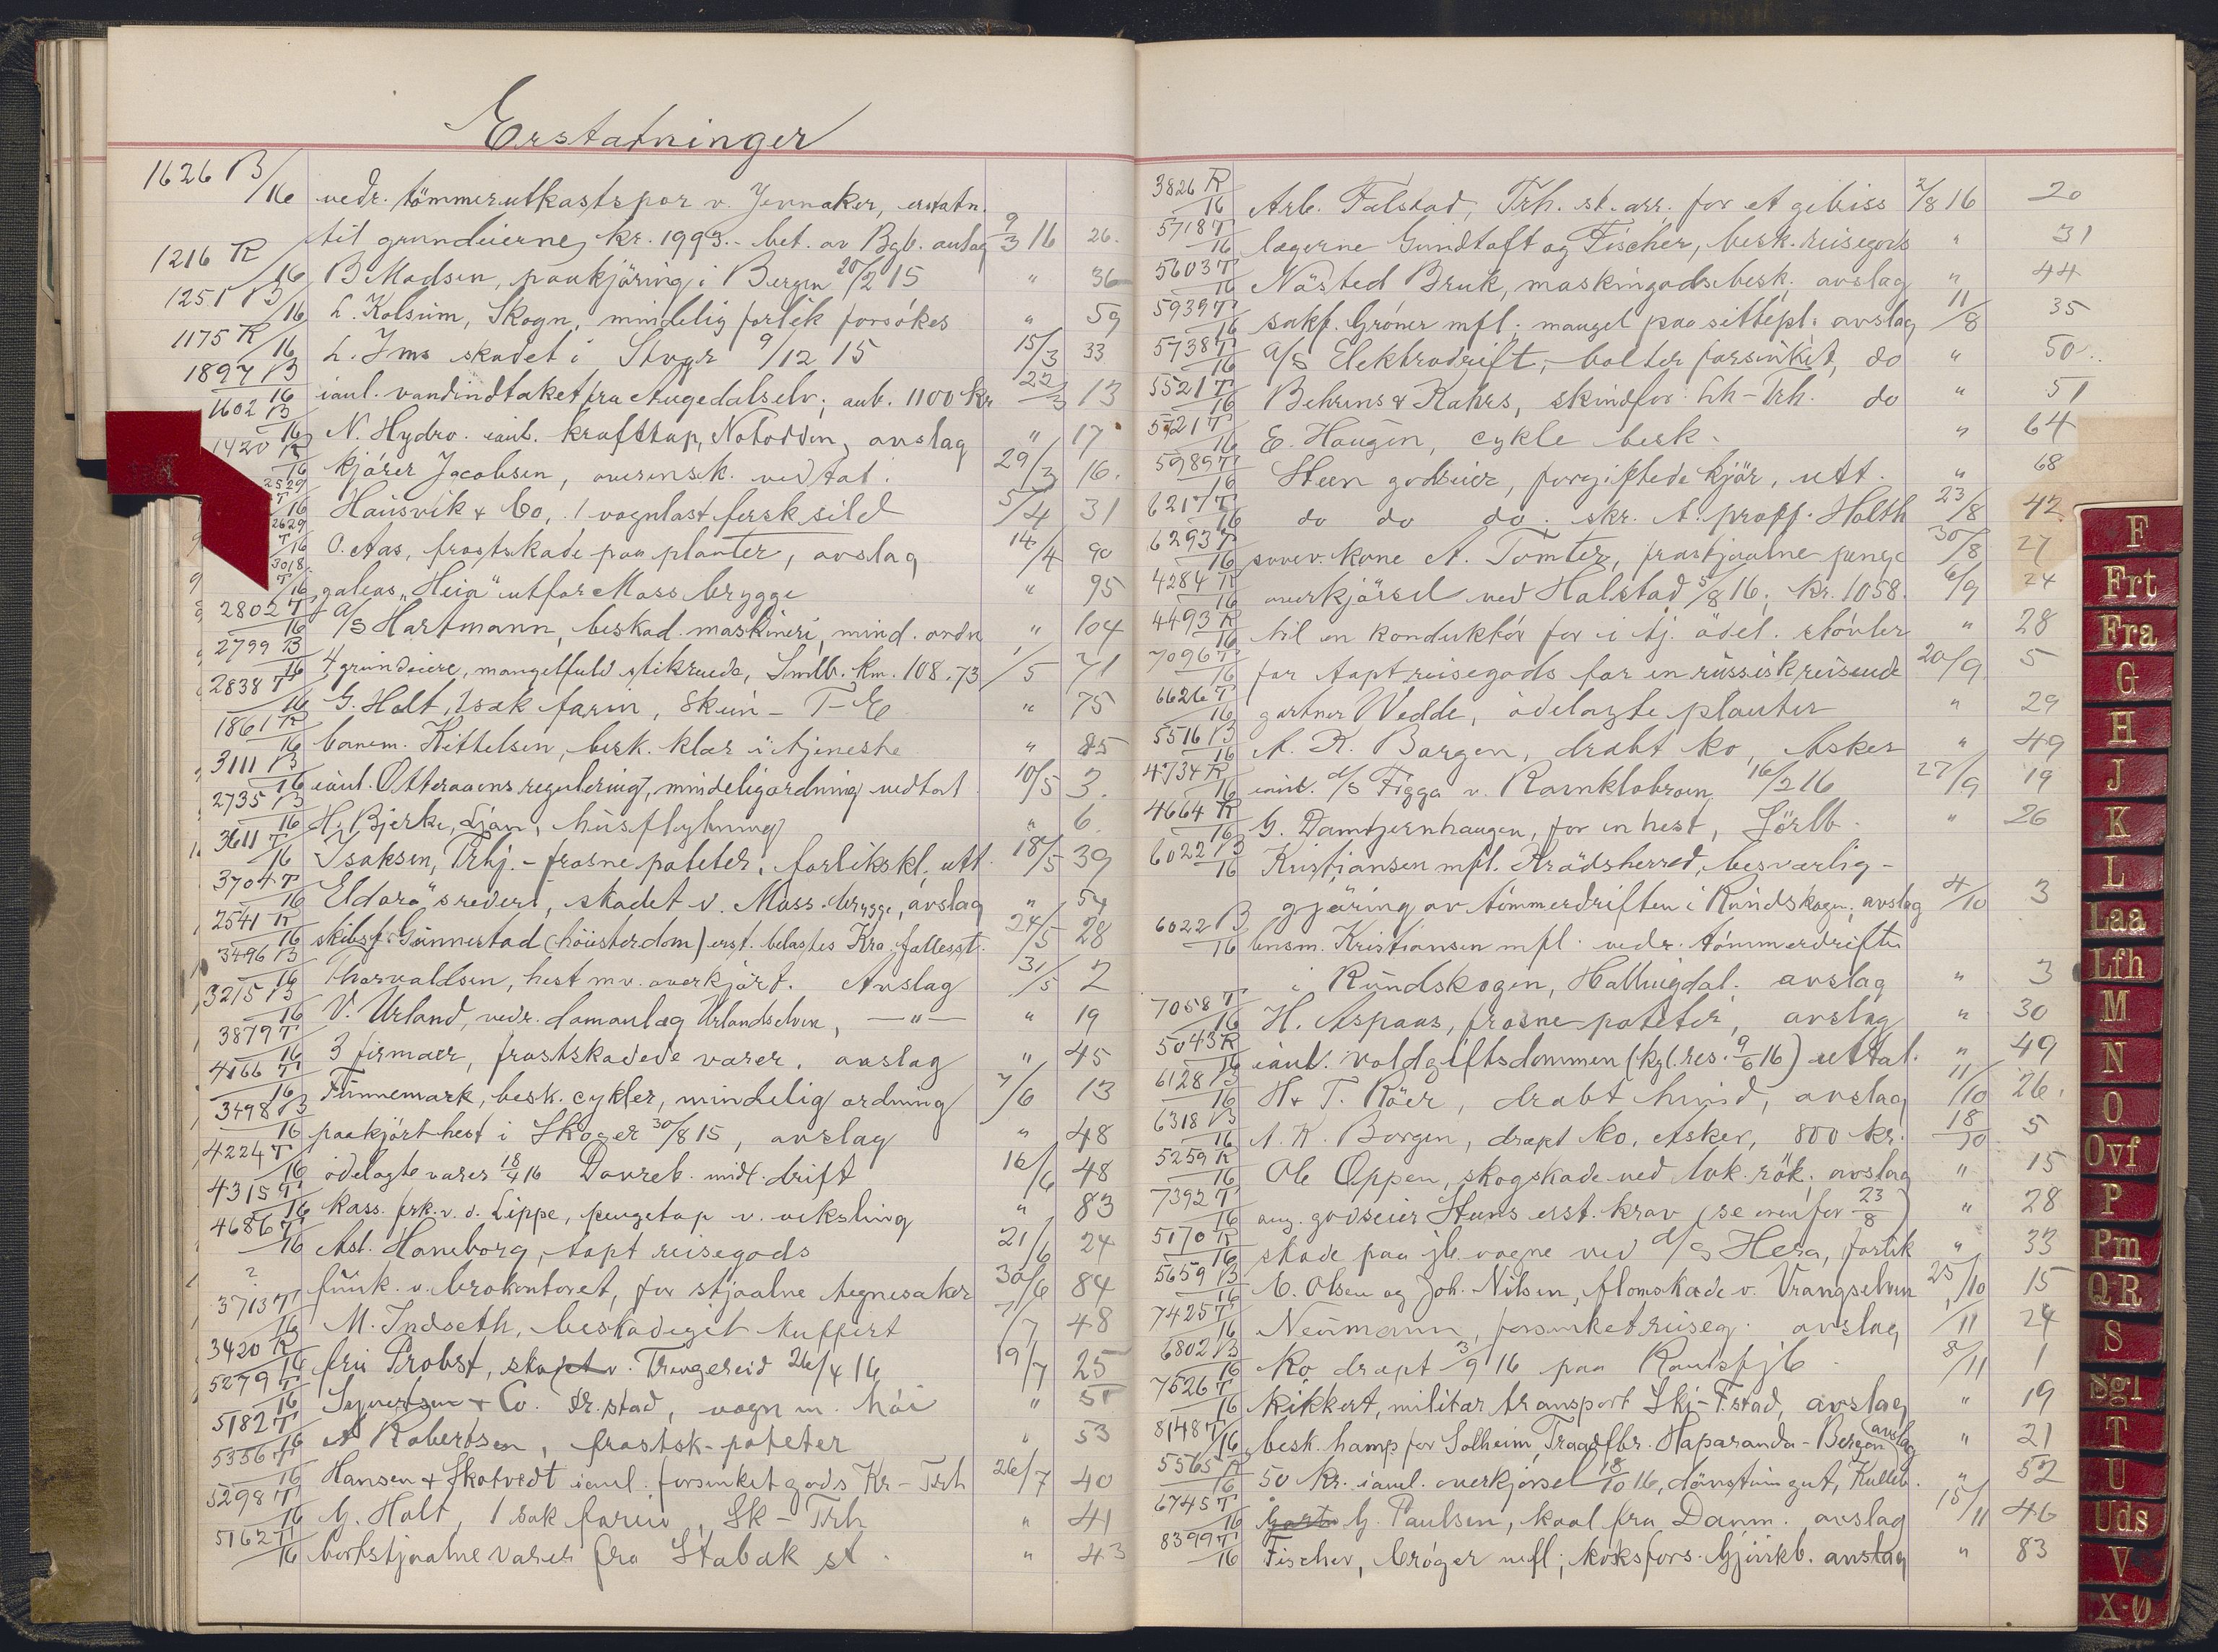 Erstatninger
1626 B/16 vedr. tømmerutkastspor v. Jevnaker, erstatn.
til grundeierne, kr. 1993.- bet. av Bgb. anlag 9/3 16 26.
1216 R/16 B. Madsen, paakjöring i Bergen 20/2 15 " 36
1251 B/16 L. Kolsum, Skogn, mindelig forlik forsökes " 59
1175 R/16 L. Ims skadet i Stvgr 9/12 15 15/3 33
1897 B/16 ianl. vandindtaket fra Augedalselv; anb. 1100 kr 22/3 13
1602 B/16 N. Hydro. ianl. krafttap, Notodden, avslag " 17
1420 R/16 kjörer Jacobsen, overensk. vedtat. 29/3 16.
2529 T/16 Hausvik & Co, 1 vognlast fersk sild 5/4 31
2629 T/16 O. Aas, frostskade paa planter, avslag 14/4 90
3018 T/16 galeas "Heia" utfor Moss brygge " 95
2802 T/16 A/S Hartmann, beskad. maskineri, mind. ordn " 104
2799 B/16 4 grundeiere, mangelfuld stikrende, Smlb. km. 108.73 1/5 71
2838 T/16 G. Holt, 1 sæk farin, Skien - T-E " 75
1861 R/16 banem. Kittelsen, besk. klær i tjeneste " 85
3111 B/16 ianl. Otteraaens regulering, mindelig ordning vedtat 10/5 3.
2735 B/16 H. Bjerke, Ljan, husflytning " 6.
3611 T/16 Isaksen, Trhj. - frosne poteter, forlikskl. utt. 18/5 39
3704 T/16 "Eldora"s rederi, skadet v. Moss. brygge, avslag " 54
2541 R/16 skibsf. Gunnestad (höiesterdom) erst. belastes Kra. fællesst. 24/5 28
3496 B/16 Thorvaldsen, hest m.v. overkjört. Avslag 31/5 2
3215 B/16 V. Urland, vedr. damanlæg Urlandselven, — " — " 19
3879 T/16 3 firmaer, frostskadede varer. avslag " 45
4166 T/16 Finnemark, besk. cykler, mindelig ordning 7/6 13
3498 B/16 paakjört hest i Skoger 30/8 15, avslag " 48
4224 T/16 ödelagte varer 18/4 16 Dovreb. midt. drift 16/6 48
4315 T/16 kass. frk. v. d. Lippe, pengetap v. veksling " 83
4686 T/16 Ast. Haneborg, tapt reisegods 21/6 24
? funk. v. brokontoret, for stjaalne tegnesaker 30/6 84
3713 T/16 M. Indseth, beskadiget kuffert 7/7 48
3420 R/16 fru Probst, skadet v. Trengereid 26/4 16 19/7 25
5279 T/16 Syvertsen & Co. Fr.stad, vogn m. höi " 51
5182 T/16 A Robertsen, frostsk. poteter " 53
5356 T/16 Hansen & Skotvedt ianl. forsinket gods Kr - Trh 26/7 40
5298 T/16 G. Holt, 1 sæk farin, Sk - Trh " 41
5162 T/16 bortstjaalne varer fra Stabæk st. " 43
3826 R/16 Arb. Falstad, Trh. st. arr. for et gebiss 2/8 16 20
5718 T/16 lægerne Gundtoft og Fischer, besk. reisegods " 31
5603 T/16 Næsted Bruk, maskingods besk. avslag " 44
5939 T/16 sakf. Gröner mfl. mangel paa sittepl. avslag 11/8 35
5738 T/16 A/S Elektrodrift, bolter forsinket, do " 50
5521 T/16 Behrens & Kahrs, skindfor. Lh - Trh. do " 51
5721 T/16 E. Haugen, cykle besk. " 64
5989 T/16 Steen godseier, forgiftede kjör, utt. " 68
6217 T/16 do do do. skr. t. proff. Holth 23/8 42
6293 T/16 sovev. kone A. Tomter, frastjaalne penge 30/8 27
4284 R/16 overkjörsel ved Halstad 5/8 16, kr. 1058. 6/9 24
4493 R/16 til en konduktör for i tj. ödel. stövler " 28
7096 T/16 for tapt reisegods for en russisk reisende 20/9 5
6626 T/16 gartner Wedde, ödelagte planter " 29
5516 B/16 A. K. Borgen, dræbt ko, Asker " 49
4734 R/16 ianl. d/s Figga v. Ramklobroen 16/2 16 27/9 19
4664 R/16 G. Damtjernhaugen, for en hest, Sörlb. " 26
6022 B/16 Kristiansen mfl. Krödsherred, besværlig-
gjöring av tömmerdriften i Rundskogen, avslag 4/10 3
6022 B/16 lensm. Kristiansen mfl. vedr. tömmerdriften
i Rundskogen, Hallingdal. avslag " 3
7058 T/16 H. Aspaas, frosne poteter, avslag " 30
5043 R/16 ianl. voldgiftsdommen (kgl. res. 9/6 16) uttal. " 49
6128 B/16 H & T. Röer, dræbt hund, avslag 11/10 26.
6318 B/16 A. K. Borgen, dræpt ko, Asker, 800 kr. 18/10 5
5259 R/16 Ole Oppen, skogskade ved lok. rök, avslag " 15
7392 T/16 ang. godseier Steens erst. krav (se ovenfor 23/8) " 28
5170 R/16 skade paa jb. vogne ved d/s Hera, forlik " 33
5659 B/16 C. Olsen og Joh. Nilsen, flomskade v. Vrangselven 25/10 15
7425 T/16 Neumann, forsinket reiseg. avslag 1/11 24
6802 B/16 Ko dræpt 3/9 16 paa Randsfjb. 8/11 1
7526 T/16 Kikkert, militær transport Ski - F.stad, avslag " 19
8148 T/16 besk. hamp for Solheim, Tragdfbr. Haparanda - Bergen, avslag " 21
5565 R/16 50 kr. ianl. overkjörsel 18/10 16, dövstum gut, Kulleb. " 52
6745 T/16 G. Paulsen, kaal fra Danm. avslag 15/11 46
8399 T/16 Fischer, Cröger mfl; koksfors. Gjövikb. avslag " 83
F
Frt
Fra
G
H
J
K
L
Laa
Lfh
M
N
O
Ovf
P
Pm
Q-R
S
Sgl
T
U
Uds
V
X-Ø